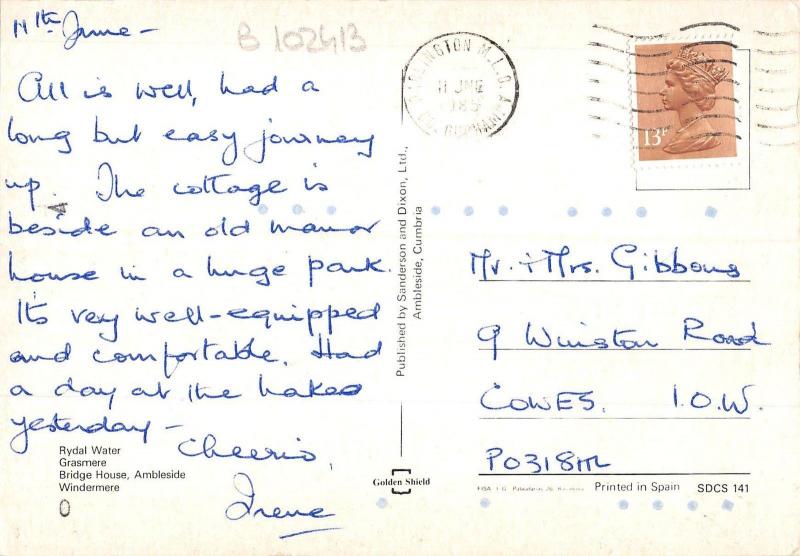 11th June -
B 1024B
All is well, had a
long but easy journey
up. The cottage is
beside an old manor
house in a huge park.
It's very well-equipped
and comfortable. Had
a day at the lakes
yesterday -
Cheerio,
Irene
Rydal Water
Grasmere
Bridge House, Ambleside
Windermere
Published by Sanderson and Dixon, Ltd.,
Ambleside, Cumbria
Golden Shield
DARLINGTON M.L.O.
11 JNE
1985
CO. DURHAM
13P
Mr. + Mrs. Gibbons
9 Winston Road
COWES. I.O.W.
PO31 8
Printed in Spain
SDCS 141